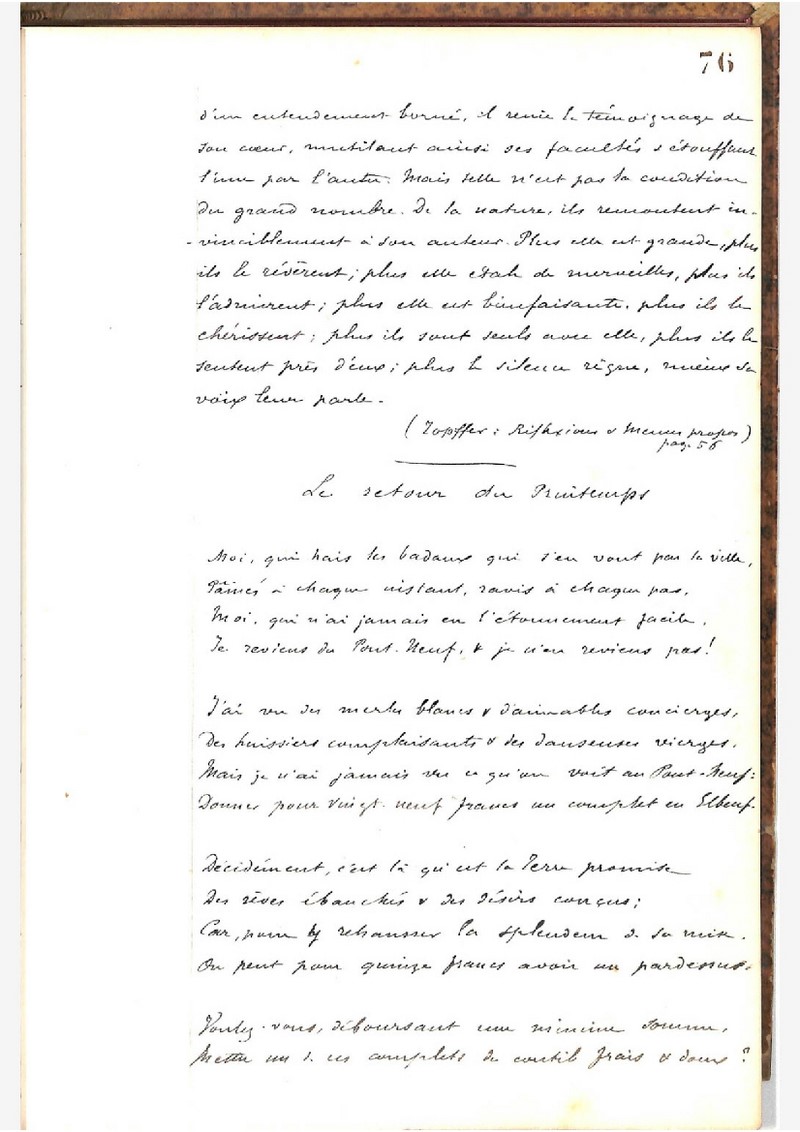 76
d'un entendement borné, il renie le témoignage de
son cœur, mutilant ainsi ses facultés & étouffant
l'une par l'autre. Mais telle n'est pas la condition
du grand nombre. De la nature, ils remontent in-
-vinciblement à son auteur. Plus elle est grande, plus
ils le révèrent; plus elle étale de merveilles, plus ils
l'admirent; plus elle est bienfaisante, plus ils le
chérissent; plus ils sont seuls avec elle, plus ils le
sentent près d'eux; plus le silence règne, mieux sa
voix leur parle.
(Topffer: Réflexions & Menus propos)
pag. 56
Le retour du Printemps
Moi, qui hais les badauds qui s'en vont par la ville,
Pâmés à chaque instant, ravis à chaque pas,
Moi, qui n'ai jamais eu l'étonnement facile,
Je reviens du Pont-Neuf, & je n'en reviens pas!
J'ai vu des merles blancs & d'aimables concierges,
Des huissiers complaisants & des danseuses vierges,
Mais je n'ai jamais vu ce qu'on voit au Pont-Neuf:
Donner pour vingt-neuf francs un complet en Elbeuf.
Décidément, c'est là qu'est la Terre promise
Des rêves ébauchés & des désirs conçus;
Car, pour y rehausser la splendeur de sa mise,
On peut pour quinze francs avoir un pardessus.
Voulez-vous, déboursant une minime somme,
Mettre un de ces complets de coutil frais & doux?